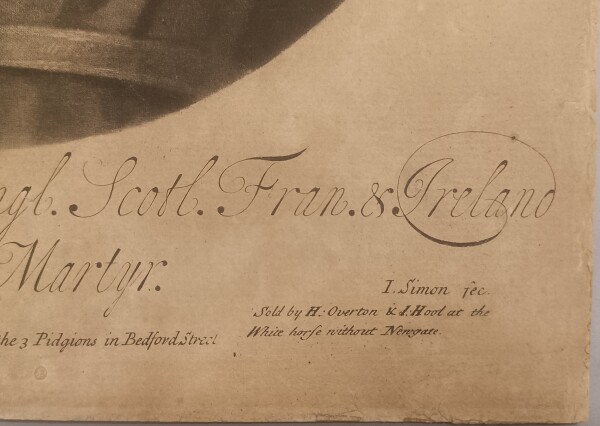 ngl. Scotl. Fran. & Ireland
Martyr.
I. Simon fec.
Sold by H. Overton & I. Hool at the
White horse without Newgate.
the 3 Pidgions in Bedford Street